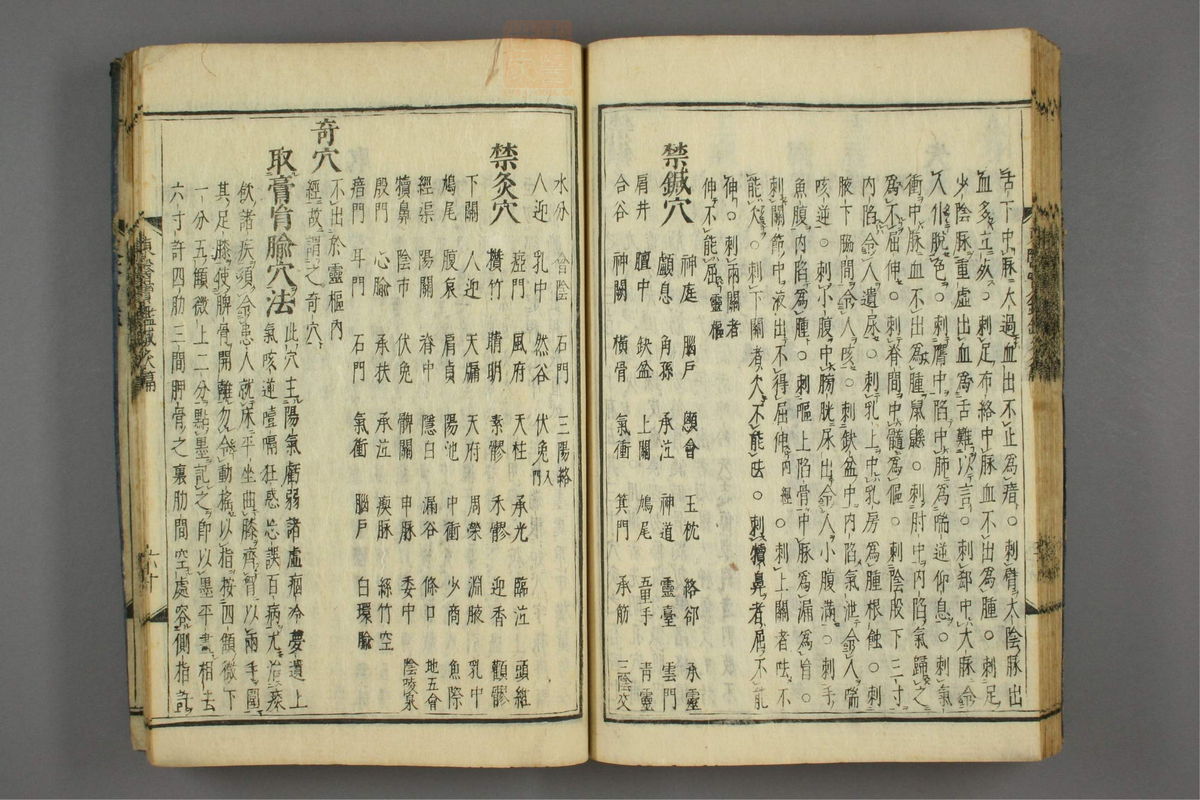 舌下中脉太過血出不止爲瘖○刺臂太陰脉出
血多立死○刺足布絡中脉血不出爲腫○刺足
少陰脉重虛出血爲舌難以言○刺郄中大脉令
人仆脫色○刺膺中陷中肺爲喘逆仰息○刺氣
衝中脉血不出爲腫鼠鼷○刺肘中内陷氣歸之
爲不屈伸○刺脊間中髓爲傴○刺陰股下三寸
内陷令人遺尿○刺乳上中乳房爲腫根蝕○刺
腋下脇間令人咳○刺缺盆中内陷氣泄令人喘
咳逆○刺小腹中膀胱尿出令人小腹滿○刺手
魚腹内陷爲腫○刺眶上陷骨中脉爲漏爲盲○
刺關節中液出不得屈伸内經○刺上關者呿不
能欠○刺下關者欠不能呿○刺犢鼻者屈不能
伸○刺兩關者
伸不能屈靈樞
禁鍼穴
神庭 腦戶 顖會 玉枕 絡郄 承靈
顱息 角孫 承泣 神道 靈臺 雲門
肩井 膻中 缺盆 上關 鳩尾 五里手 青靈
合谷 神闕 橫骨 氣衝 箕門 承筋 三陰交
水分 會陰 石門 三陽絡
人迎 乳中 然谷 伏兔
禁灸穴
瘂門 風府 天柱 承光 臨泣 頭維
攢竹 睛明 素髎 禾髎 迎香 顴髎
下關 人迎 天牖 天府 周榮 淵腋 乳中
鳩尾 腹哀 肩貞 陽池 中衝 少商 魚際
經渠 陽關 脊中 隱白 漏谷 條口 地五會
犢鼻 陰市 伏兔 髀關 申脉 委中 陰陵泉
殷門 心腧 承扶 承泣 瘈脉 絲竹空
瘖門 耳門 石門 氣衝 腦戶 白環腧
奇穴
不出於靈樞内
經故謂之奇穴
取膏肓腧穴法
此穴主陽氣虧弱諸虛痼冷夢遺上
氣咳逆噎嗝狂惑忘誤百病尤治痰
飲諸疾須令患人就床平坐曲膝齊胷以兩手圍
其足膝使脾骨開離勿令動搖以指按四顀微下
一分五顀微上二分點墨記之卽以墨平畫相去
六寸許四肋三間胛骨之裏肋間空處容側指許